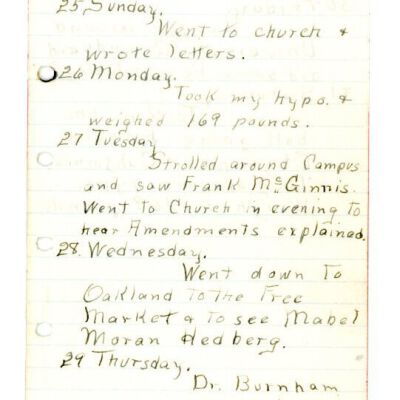 25 Sunday.
Went to church &
wrote letters.
26 Monday.
Took my hypo. &
weighed 169 pounds.
27 Tuesday
Strolled around Campus
and saw Frank McGinnis.
Went to Church in evening to
hear Amendments explained.
28. Wednesday.
Went down to
Oakland to the Free
Market & to see Mabel
Moran Hedberg.
29 Thursday.
Dr. Burnham